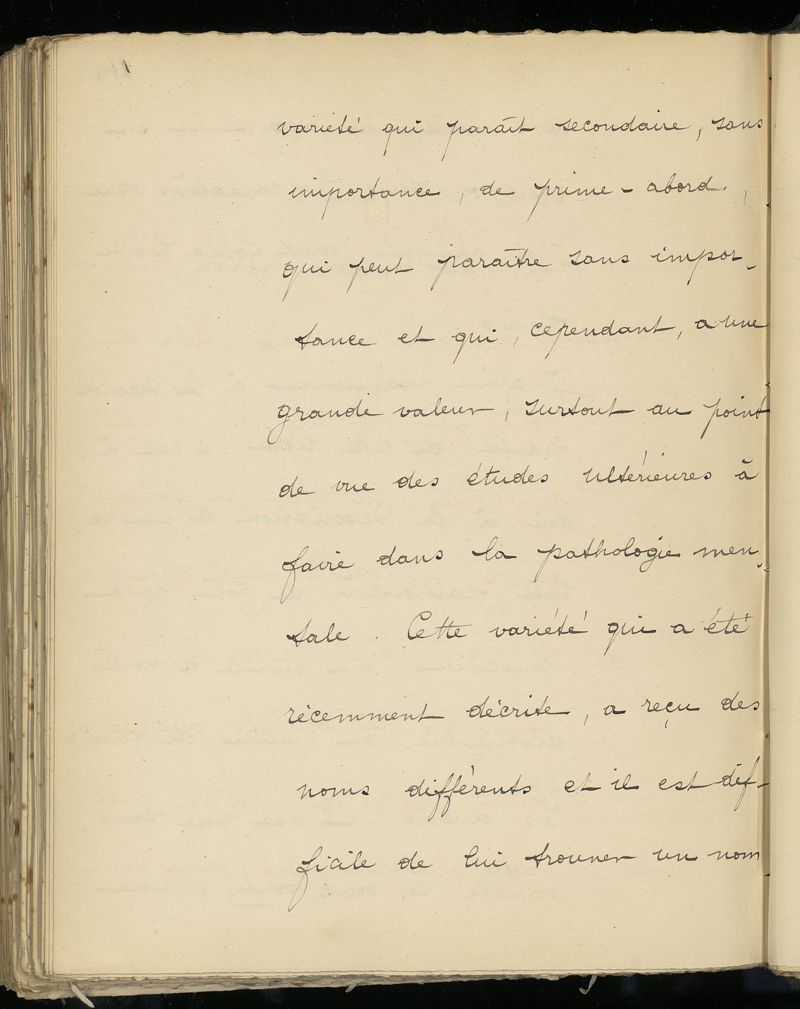 variété qui paraît secondaire, sans
importance, de prime-abord,
qui peut paraître sans impor-
tance et qui, cependant, a une
grande valeur, surtout au point
de vue des études ultérieures à
faire dans la pathologie men-
tale. Cette variété qui a été
récemment décrite, a reçu des
noms différents et il est dif-
ficile de lui trouver un nom